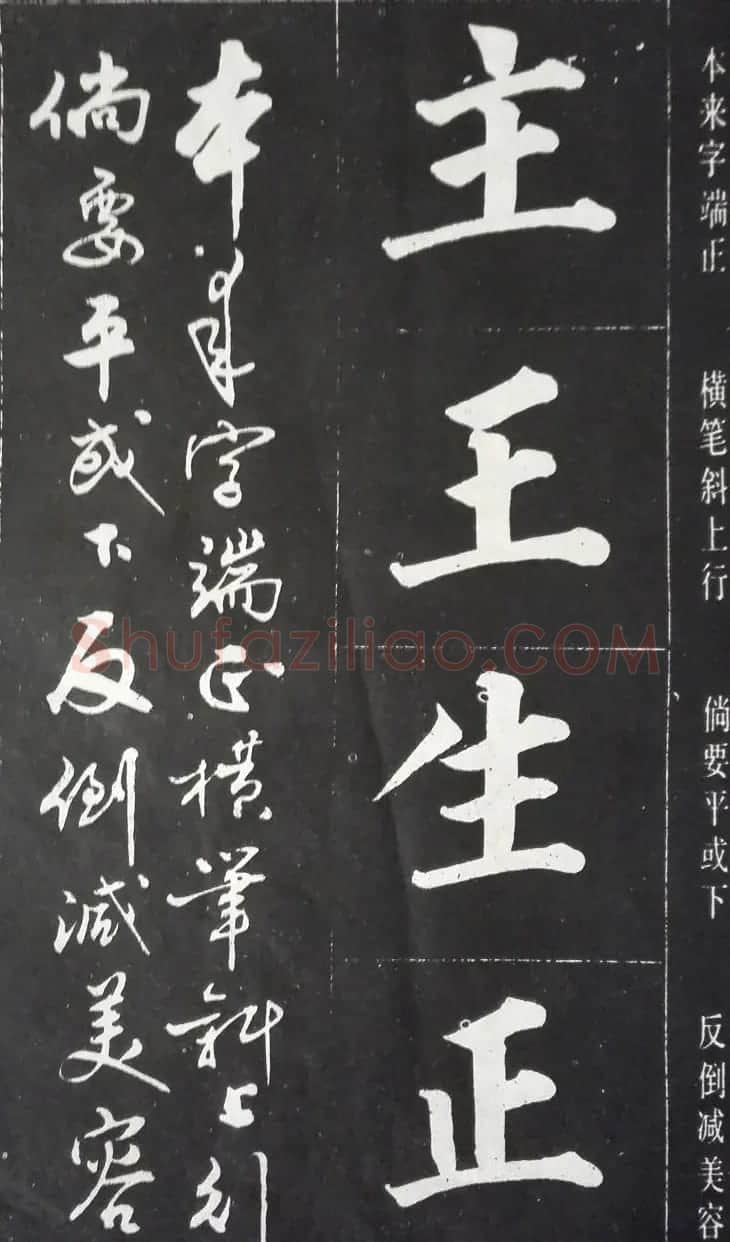 本来字端正 横笔斜上行 倘要平或下 反倒减美容
主王生正
本来字端正横筆斜上行
倘要平或下反倒減美容
Shufaziliao.COM